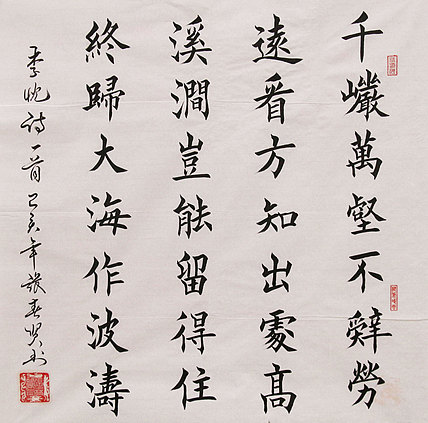 千巖萬壑不辭勞
遠看方知出處高
溪澗豈能留得住
終歸大海作波濤
李忱詩一首己亥年張春賢書